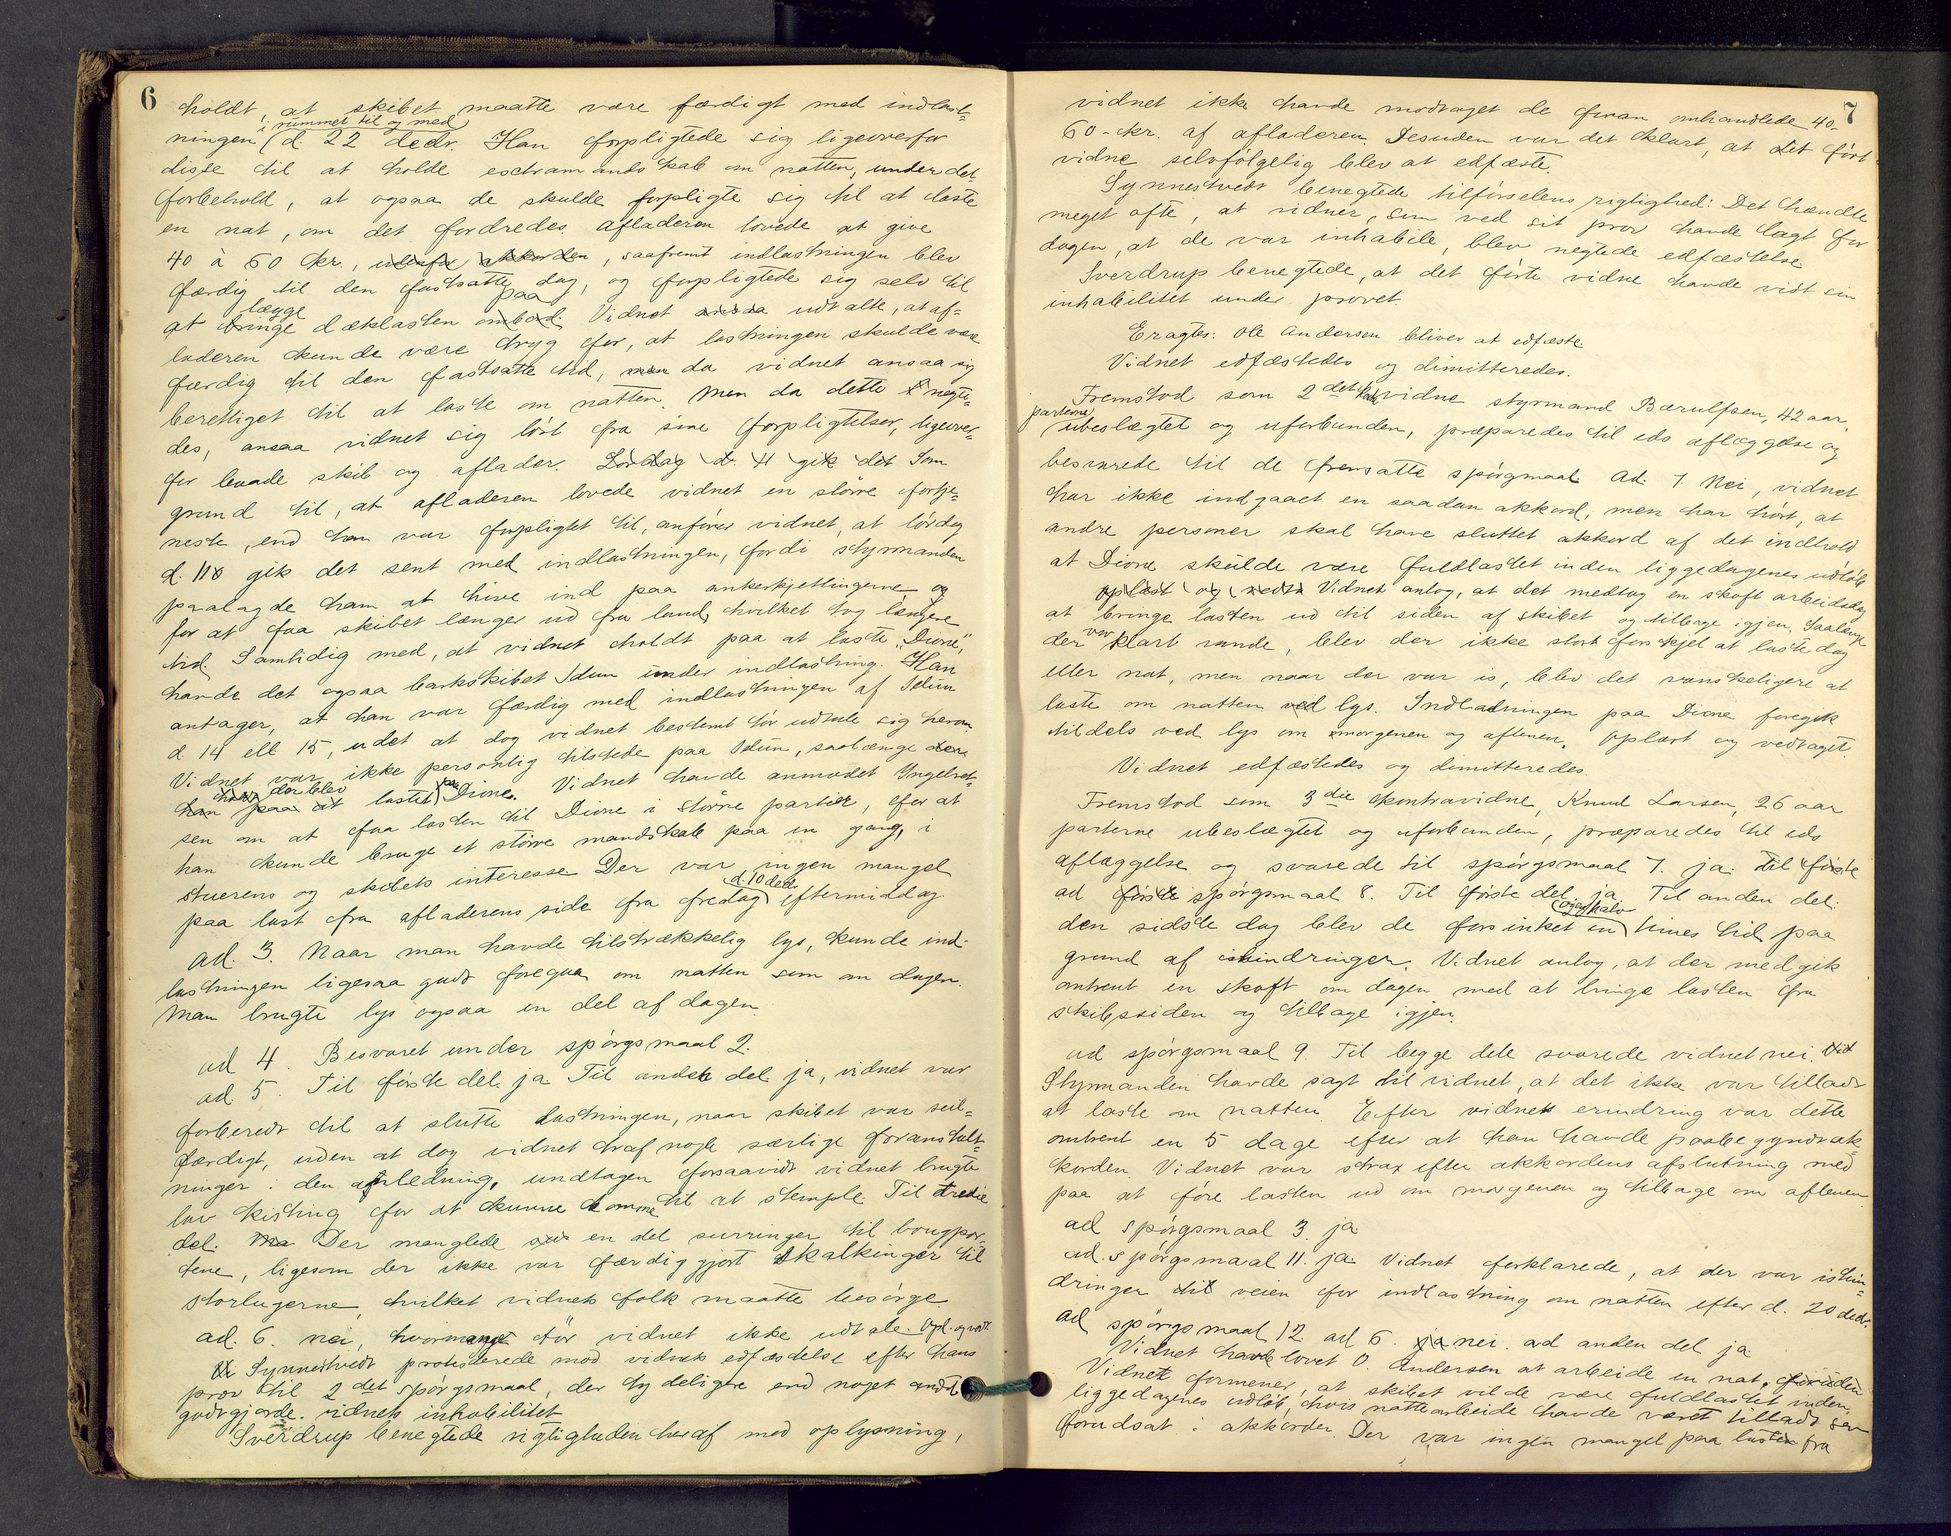 6
holdt, at skibet maatte være færdigt med indlast-
ningen i rummet til og med d. 22 decbr. Han forpligtede sig ligeoverfor
disse til at holde exstramandskab om natten, under det
forbehold, at ogsaa de skulde forpligte sig til at laste
en nat, om det fordredes. afladeren lovede at give
40 à 60 kr., udenfor akkorden, saafremt indlastningen blev
færdig til den fastsatte dag, og forpligtede sig selv til
at bringe lægge dækslasten ombord paa. Vidnet ansaa udtalte, at af-
laderen kunde være tryg for, at lastningen skulde være
færdig til den fastsatte tid, men da vidnet ansaa sig
berettiget til at laste om natten. Men da dette negte-
des, ansaa vidnet sig løst fra sine forpligtelser, ligeover-
for baade skib og aflader. Lørdag d. 11 gik det Som
grund til, at afladeren lovede vidnet en større fortje-
neste, end han var forpligtet til, anfører vidnet, at lørdag
d. 11 gik det sent med indlastningen, fordi styrmanden
paalagde ham at hive ind paa ankerkjettingerne og
for at faa skibet længer ud fra land, hvilket tog længere
tid. Samtidig med, at vidnet holdt paa at laste "Dione",
havde det ogsaa barkskibet Idun under indlastning. Han
antager, at han var færdig med indlastningen af Idun
d 14 ell 15, udet at dog vidnet bestemt tør udtale sig herom.
Vidnet var ikke personlig tilstede paa Idun, saalænge der
han holdt paa at der blev lastet paa Dione. Vidnet havde anmodet Yngelret-
sen om at faa lasten til Dione i større partier, for at
han kunde bruge et større mandskab paa en gang, i
stuerens og skibets interesse. Der var ingen mangel
paa last fra afladerens side fra fredag d. 10 decbr eftermiddag.
ad. 3. Naar man havde tilstrækkelig lys, kunde ind-
lastningen ligesaa godt foregaa om natten som om dagen.
Man brugte lys ogsaa en del af dagen.
ad 4. Besvaret under spørgsmaal 2.
ad. 5. Til første del ja. Til anden del ja, vidnet var
forberedt til at slutte lastningen, naar skibet var seil-
færdigt, uden at dog vidnet traf nogle særlige foranstalt-
ninger i den anledning, undtagen forsaavidt vidnet brugte
lav kisting for at kunne komme til at stemple. Til tredie
del: Ma Der manglede en del surringer til bougpor-
tene, ligesom der ikke var færdiggjort skalkinger til
storlugerne, hvilket vidnets folk maatte besørge.
ad. 6. nei, hvormange tør vidnet ikke udtale. Opl. og vedt.
Synnestvedt protesterede mod vidnets edfæstelse efter hans
prov til 2det spørgsmaal, der tydeligere end noget andet
godtgjorde vidnets inhabilitet.
Sverdrup benegtede rigtigheden heraf med oplysning,
7
vidnet ikke havde modtaget de foran omhandlede 40-
60 kr. af afladeren. Desuden var det klart, at det først
vidne selvfølgelig blev at edfæste.
Synnestvedt benegtede tilførselens rigtighed: Det hændte
meget ofte, at vidner, som ved sit prov havde lagt for
dagen, at de var inhabile, blev negtede edfæstelse.
Sverdrup benegtede, at det førte vidne havde vist sin
inhabilitet under provet.
Eragtes: Ole Andersen bliver at edfæste.
Vidnet edfæstedes og dimitteredes.
Fremstod som 2det kontravidne styrmand Bærulfsen, 42 aar,
parterne ubeslægtet og uforbunden, præparedes til eds aflæggelse og
besvarede til de fremsatte spørgmaal. Ad. 7. Nei, vidnet
har ikke indgaaet en saadan akkord, men har hørt, at
andre personer skal have sluttet akkord af det indhold
at Dione skulde være fuldlastet inden liggedagenes udløb
oplæst og vedta Vidnet antog, at det medtog en skoft arbeidsdag
at bringe lasten ud til siden af skibet og tilbage igjen. Saalænge
der var klart vande, blev der ikke stort forskjel at laste dag
eller nat, men naar der var is, blev det vanskeligere at
laste om natten ved lys. Indladningen paa Dione foregik
tildels ved lys om morgenen og aftenen. Oplæst og vedtaget.
Vidnet edfæstedes og dimitteredes.
Fremstod som 3die kontravidne, Knud Larsen, 26 aar
parterne ubeslægtet og uforbunden, præparedes til eds
aflæggelse og svarede til spørgsmaal 7. ja. Til første
ad første spørgsmaal 8. Til første del ja. Til anden del:
den sidste dag blev de forsinket en og en halv times tid paa
grund af ishindringer. Vidnet antog, at der medgik
omtrent en skoft om dagen med at bringe lasten fra
skibssiden og tilbage igjen.
ad spørgsmaal 9. Til begge dele svarede vidnet nei. Vid
Styrmanden havde sagt til vidnet, at det ikke var tilladt
at laste om natten. Efter vidnets erindring var dette
omtrent en 5 dage efter at han havde paabegyndt ak-
korden. Vidnet var strax efter akkordens afslutning med
paa at føre lasten ud om morgenen og tilbage om aftenen.
ad spørgsmaal 3. ja
ad. spørgsmaal 11. ja. Vidnet forklarede, at der var ishin-
dringer til veien for indlastning om natten efter d. 20 decbr.
ad spørgsmaal 12 ad 6. ja nei. ad anden del ja
Vidnet havde lovet O. Andersen at arbeide en nat, foruden
Vidnet formener, at skibet vilde være fuldlastet inden
liggedagenes udløb, hvis nattearbeide havde været tilladt som
forudsat i akkorden. Der var ingen mangel paa lasten fra